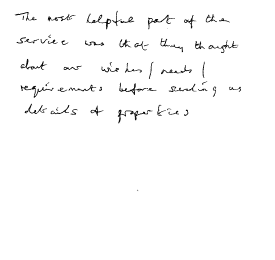 The most helpful part of the
service was that they thought
about our wishes / needs /
requirements before sending us
details of properties